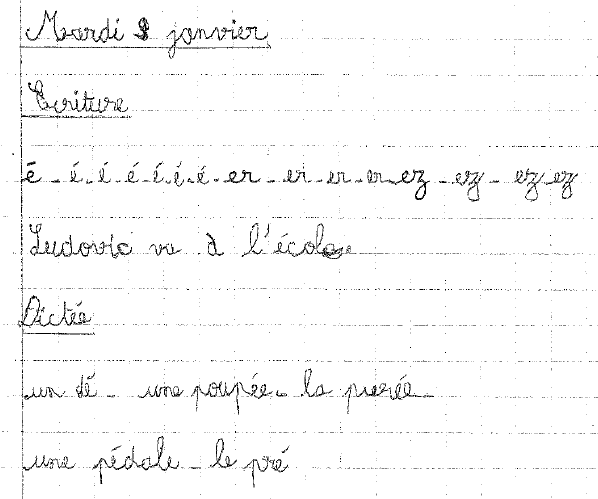 Mardi 8 janvier
Ecriture
é - é - é - é - é - é - é - er - er - er - er - ez - ez - ez - ez
Ludovic va à l'école
Dictée
un dé - une poupée - la purée -
une pédale - le pré